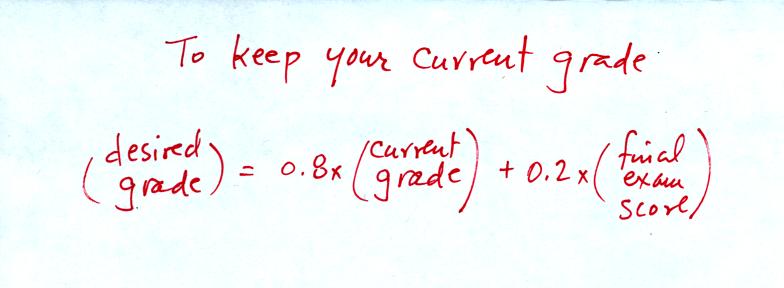 To keep your current grade
(desired grade) = 0.8x (current grade) + 0.2x (final exam score)